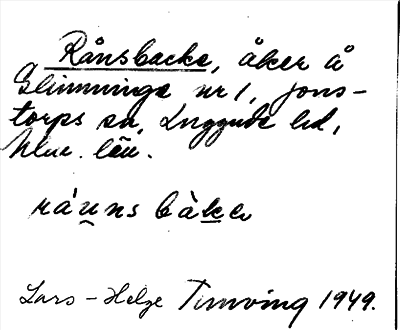 Rånsbacke, åker å
Glimminge nr 1, Jons-
torps sn, Luggude hd,
Mlm. län.
råu̯ns bàke
Lars-Helge Tunving 1949.